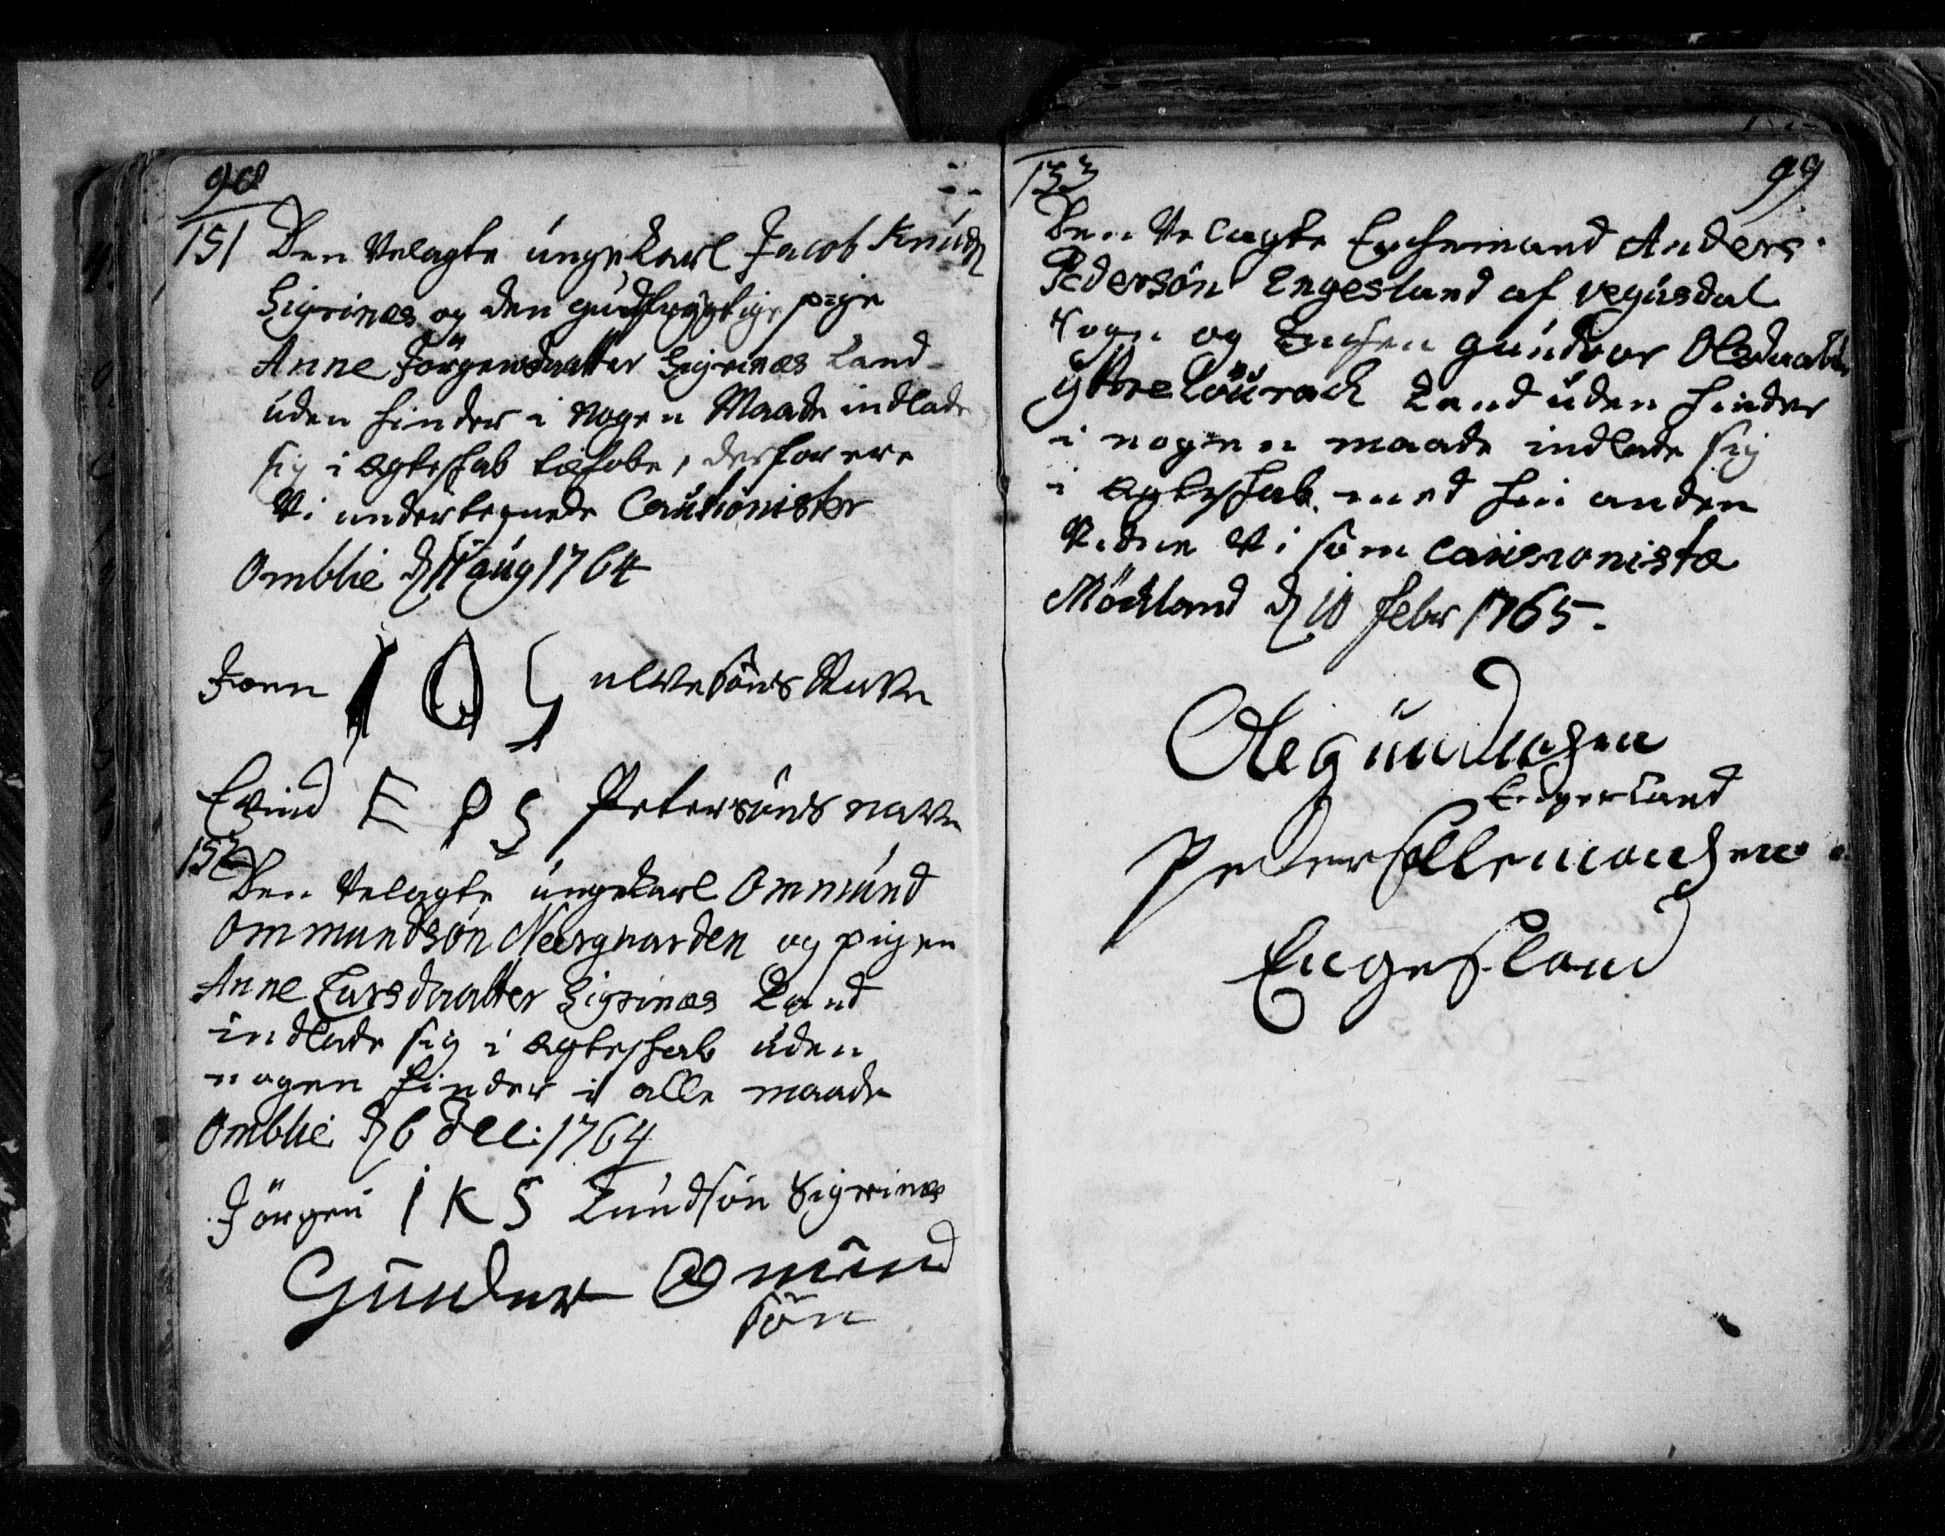 98
151 Den Velagte ungekarl Jacob Knuds
Sigrinæs og den gudfrygtige pige
Anne Jörgensdaatter Sigrinæs kand
uden hinder i nogen Maade indlade
sig i ægteskab , derfor ere
Vi undertegnede Cautionister
Omblie d 11 aug 1764
Joen I O S ulvesöns Navn
Evind E P S Petersöns navn
152
Den Velagte ungekarl Ommund
Ommundsøn Neergaarden og pigen
Anne Larsdaatter Sigrinæs kand
indlade sig i ægteskab uden
nogen hinder i alle maade
Omblie d 6 dec: 1764
Jörgen I K S Knudsøn Sigrinæs
Gunder Omund
sön
99
153
Den Velagte Enkemand Anders
Pedersøn Engesland af vegusdal
sogn og Enken gundvor Olsdaatter
ÿttre kand uden hinder
i nogen maade indlade sig
i ægteskab med hin anden
Vidne Vi som cautionistæ
Möckland d 10 febr 1765.
Ole gundersen
Peder Sallemonsen
Engesland